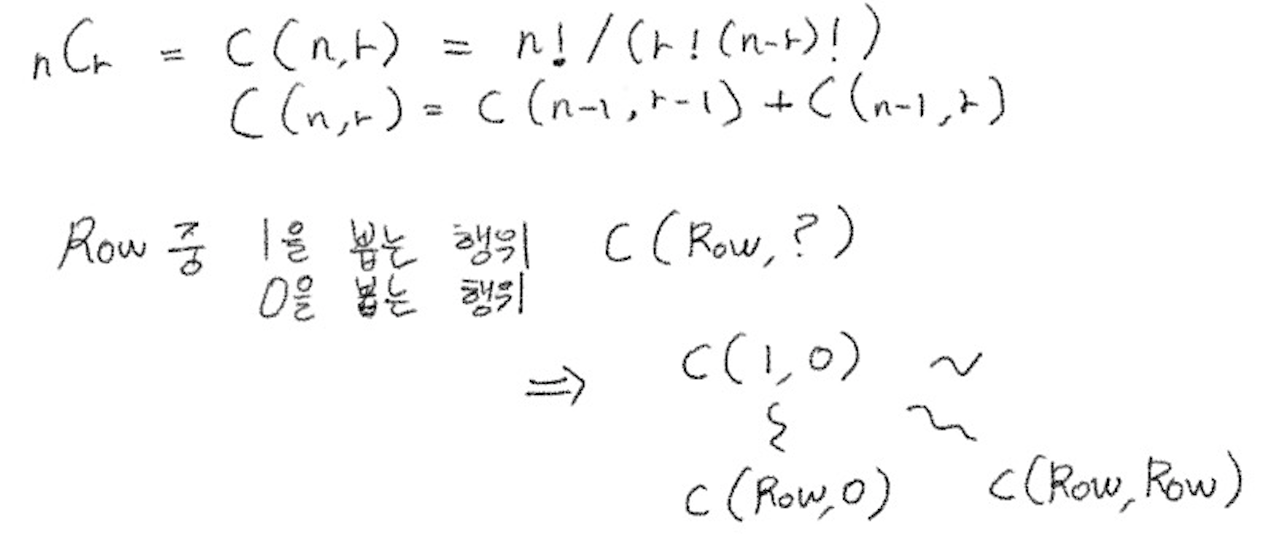 nCr = C(n,r) = n!/(r!(n-r)!)
C(n,r) = C(n-1,r-1) + C(n-1,r)
Row 중 1을 뽑는 행위 C(Row,?)
0을 뽑는 행위
⇒ C(1,0) ~
~ ~
C(Row,0) C(Row,Row)